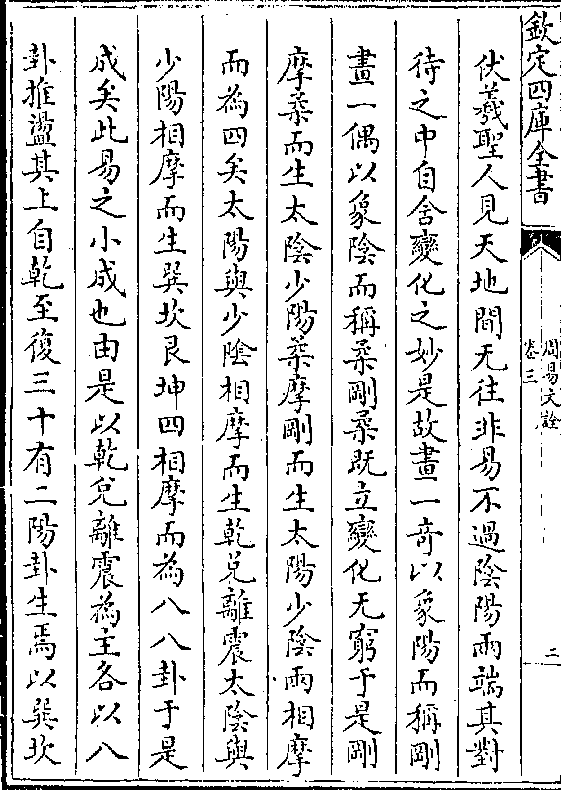 欽定四庫全書
周易文詮
卷三
二
伏羲聖人見天地間无往非易不過陰陽兩端其對
待之中自含變化之妙是故畫一奇以象陽而稱剛
畫一偶以象陰而稱柔剛柔既立變化无窮于是剛
摩柔而生太陰少陽柔摩剛而生太陽少陰兩相摩
而為四矣太陽與少陰相摩而生乾兌離震太陰與
少陽相摩而生巽坎艮坤四相摩而為八八卦于是
成矣此易之小成也由是以乾兌離震為主各以八
卦推盪其上自乾至復三十有二陽卦生焉以巽坎